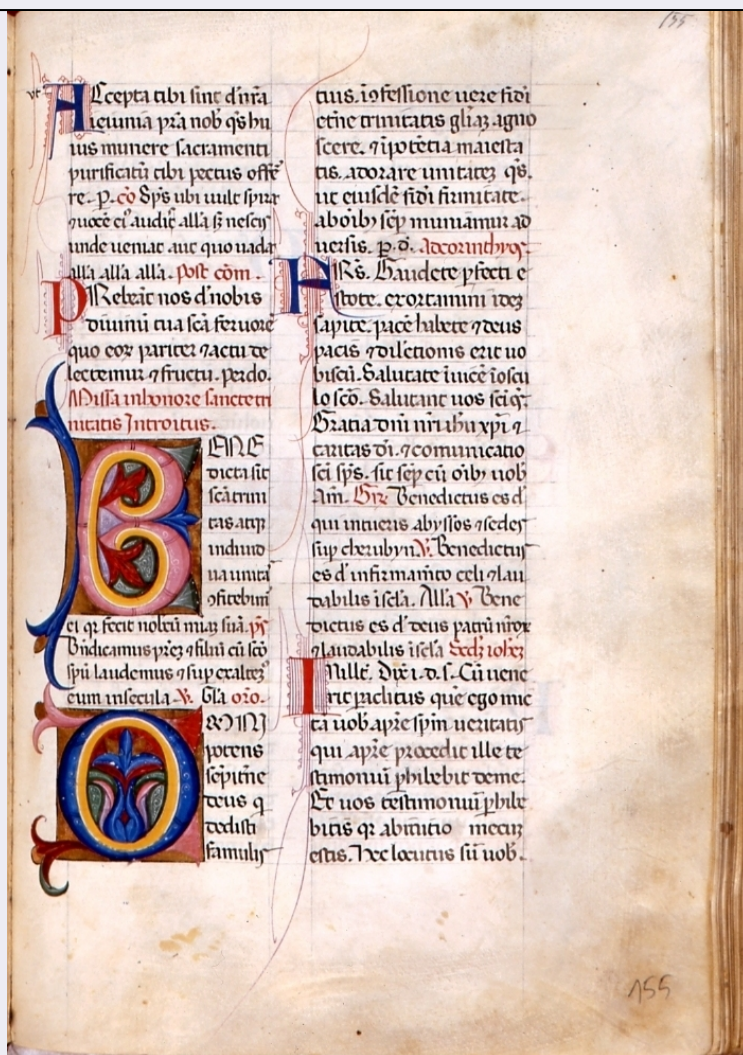 155
Accepta tibi sint dn̄e nr̄a
ieiunia p̄ra nob̄ q̄s hu
ius munere sacramenti
purificatū tibi pectus offē
re. p. cō Sp̄s ubi uult spirat
⁊ uocē ei᾽ audiē alla s̄z nescis
unde ueniat aut quo uada
alla alla alla. Post com̄.
PRebeāt nos d᾽ nobis
diuinū tua scā feruorē
quo eoꝝ pariter ⁊ actu de
lectemur ⁊ fructu. per do.
Missa in honore sancte tri
nitatis Introitus.
BENE
dicta sit
scā trini
tas atqȝ
indiuid
ua unita
ꝯfitebim᾽
ei qr fecit nobcū miāȝ suā. ps̄
Bn̄dicamus pr̄eȝ ⁊ filiū cū sc̄o
spū laudemus ⁊ sup exalteȝ
eum in secula V. Gl̄a oro.
OMNI
potens
sēpitn̄e
deus q
dedisti
famulis
tuis. ī ꝯfessione uere fidī
etn̄e trinitatis gl̄iaȝ agno
scere. ⁊ ī potētia maiesta
tis. adorare unitateȝ q̄s.
ut eiusdē fidī firmitate.
ab oībȝ sēp muniamur ad
uersis. p. d. Ad corinthyos.
FRS. Gaudete pfecti e
stote. exortamini ideȝ
sapite. pacē habete ⁊ deus
pacis ⁊ dilectionis erit uo
biscū. Salutate īuicē ī oscu
lo sc̄o. Salutant uos sc̄i
Gratia dn̄i nr̄i ihū xp̄i ⁊
caritas dī. ⁊ comunicatio
sc̄i sp̄s. sit sēp cū oībȝ uob
am̄. Gr̄. Benedictus es d᾽
qui intueris abyssos ⁊ sedes
sup cherubyn V. Benedictus
es d᾽ in firmamīto celi ⁊ lau
dabilis ī scl̄a. Alla V. Bene
dictus es d᾽ deus patrū nr̄oꝝ
⁊ laudabilis ī scl̄a Scd̄ȝ ioheȝ
IN ill᾽ t̄. Dix̄ i. d. s. Cū uene
rit paclitus quē ego mic
tā uob a pr̄e spm̄ ueritatis
qui a pr̄e procedit ille te
stimoniū phibebit de me.
Et uos testimoniū phibe
bitis qr ab initio mecuȝ
estis. Hec locutus sū uob.
155